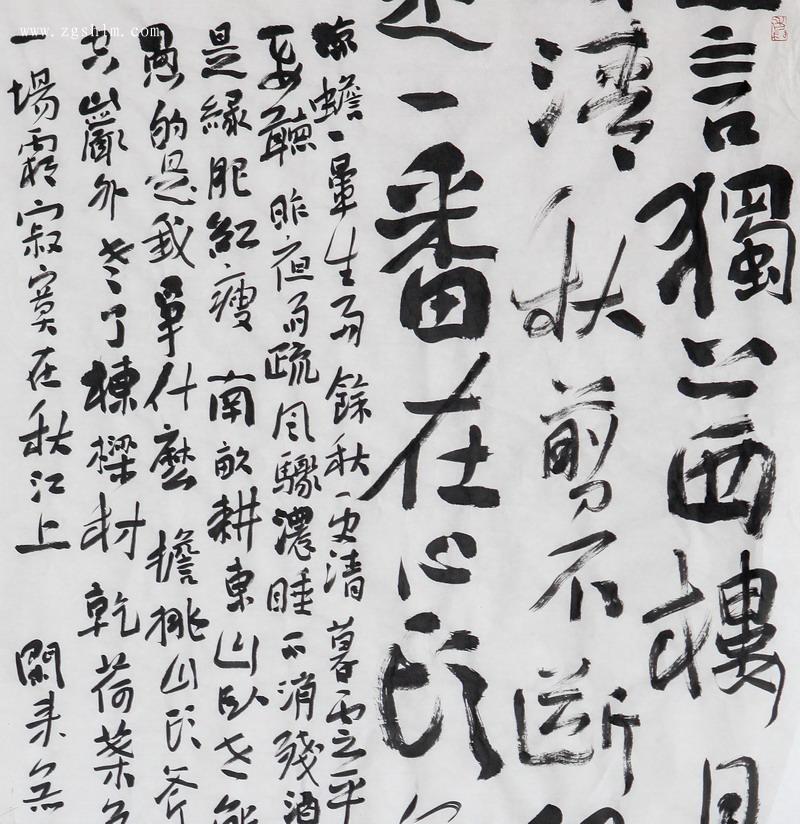 www.zgshlm.com
言獨上西樓 月
清秋剪不斷
是一番在心頭
一暈生雨 餘秋更清 暮雲平
聽 昨夜雨疏風驟濃睡不消殘酒
是綠肥紅瘦 南畝耕東山臥
愚的是我爭什麼 擔挑山頭斧
山巖外老了棟樑材 乾荷葉色
一場霜寂寞在秋江上 閑來無